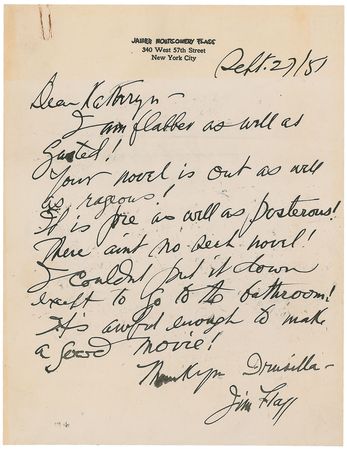 JAMES MONTGOMERY FLAGG
340 West 57th Street
New York City
Sept. 27/51
Dear Kathryn -
I am flabber as well as
Gasted!
Your novel is out as well
as rageous!
It is pre as well as posterous!
There aint no sech novel!
I couldn't put it down
except to go to the bathroom!
It's awful enough to make
a good movie!
Drusilla -
Jim Flagg